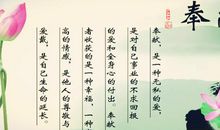 奉
奉献,是一种无私的爱,
是对自己事业的不求回报
的爱和全身心的付出。
者收获的是一种幸福,一种
高的情感,是他人的尊敬与
爱戴,是自己生命的延长。